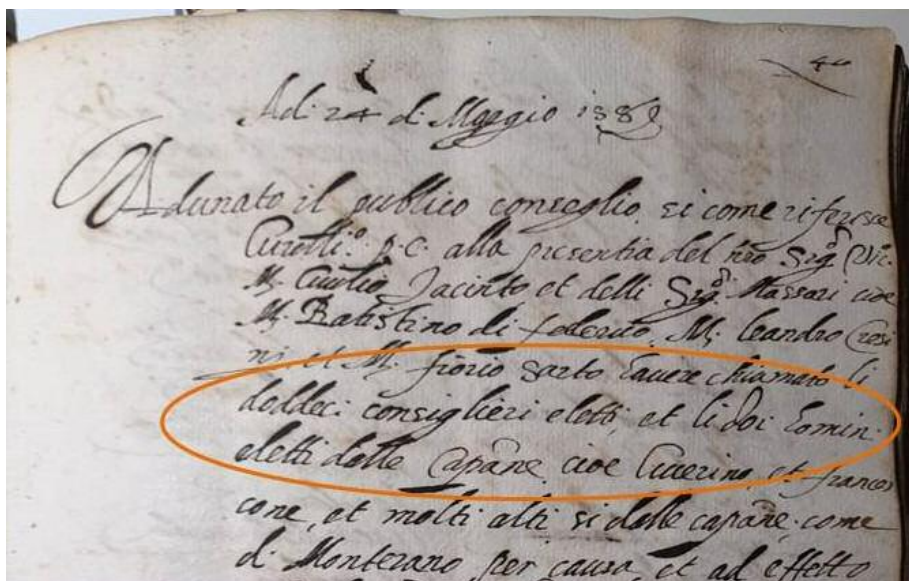 40
Adi 24 di Maggio 158
Adunato il publico conseglio si come riferisce
p. c. alla presentia del nro Sigr Vic.
M. Jacinto et delli Sigri Massari cioe
M. Batistino di federico, M. leandro Cresi
ni, et M. fiorio sarto havere chiamato li
doddeci consiglieri eletti, et li doi homin
eletti delle Capane cioe et frances
cone, et molti alti si delle capane come
di Monterano per causa, et ad effetto